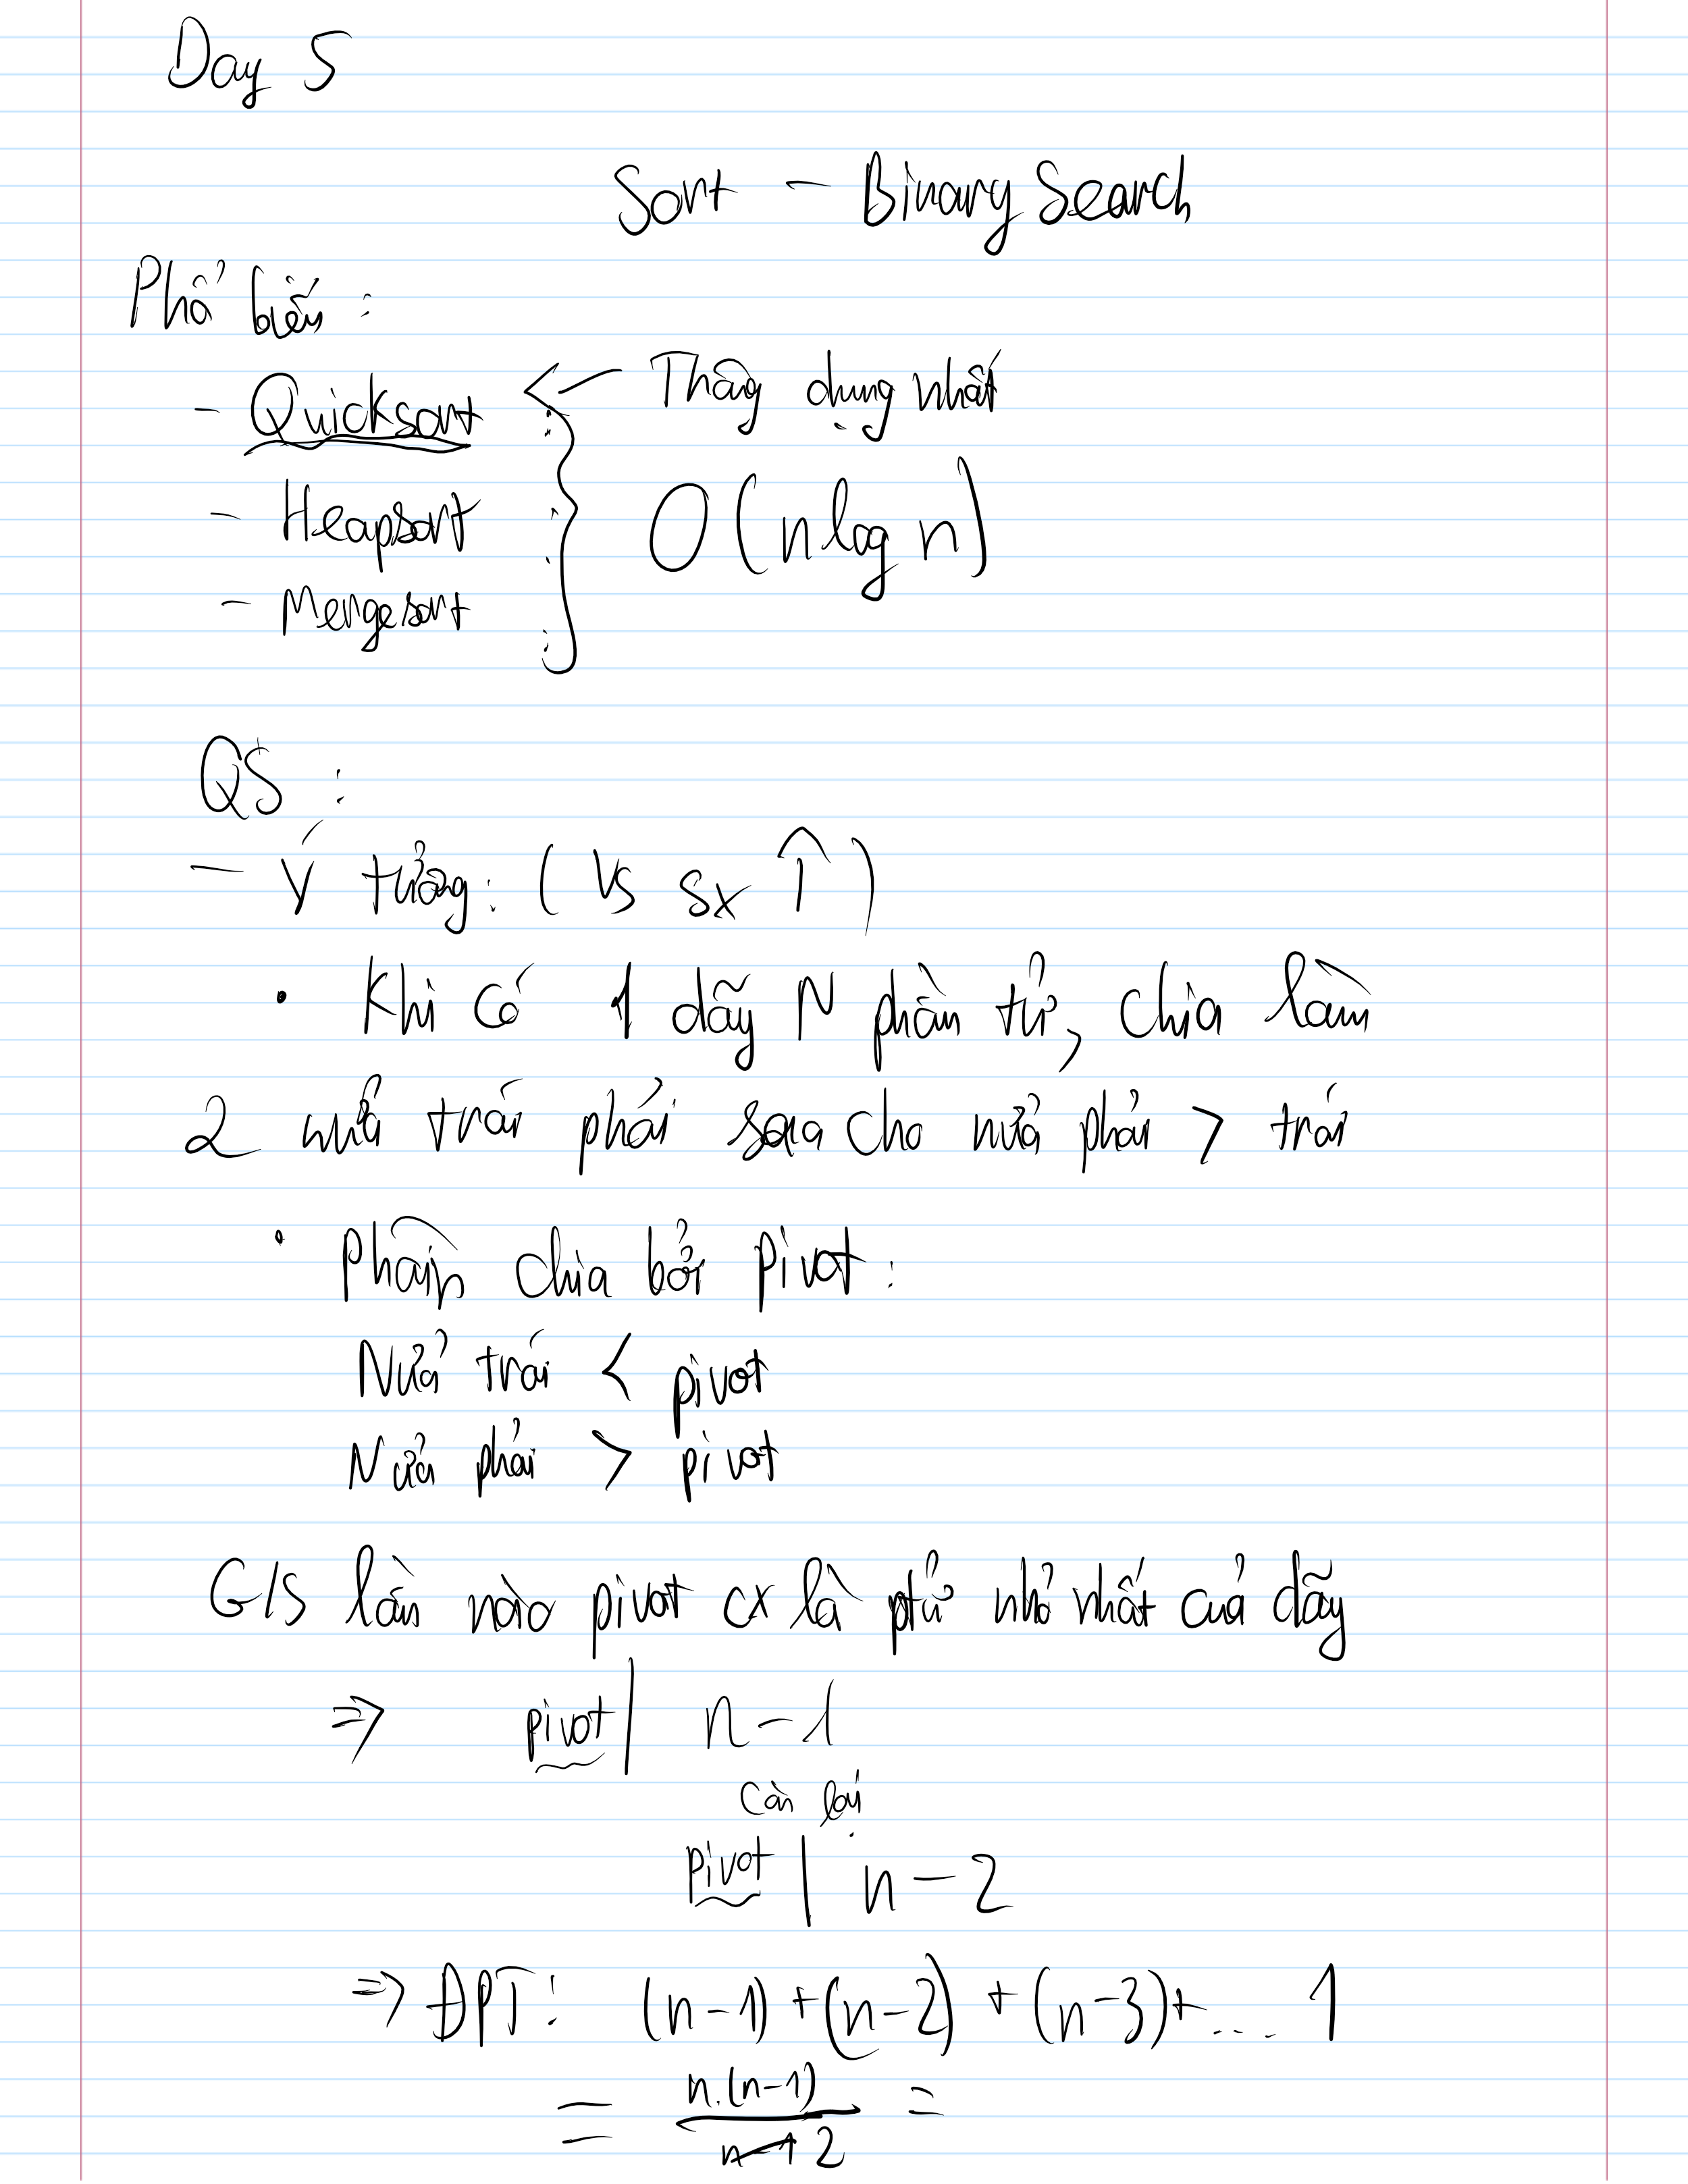 Day 5
Sort - Binary Search
Phổ biến :
- Quicksort <- Thông dụng nhất
- Heapsort
O(nlog n)
- Mergesort
QS :
- Ý tưởng: ( Vs sx ↑ )
• Khi có 1 dãy N phần tử, chia làm
2 nửa trái phải sao cho nửa phải > trái
• Phân chia bởi pivot :
Nửa trái < pivot
Nửa phải > pivot
G/s lần nào pivot cx là ptử nhỏ nhất của dãy
=> pivot | n-1
còn lại
pivot | n-2
=> ĐPT: (n-1) + (n-2) + (n-3) + .... 1
= n.(n-1) / 2 =